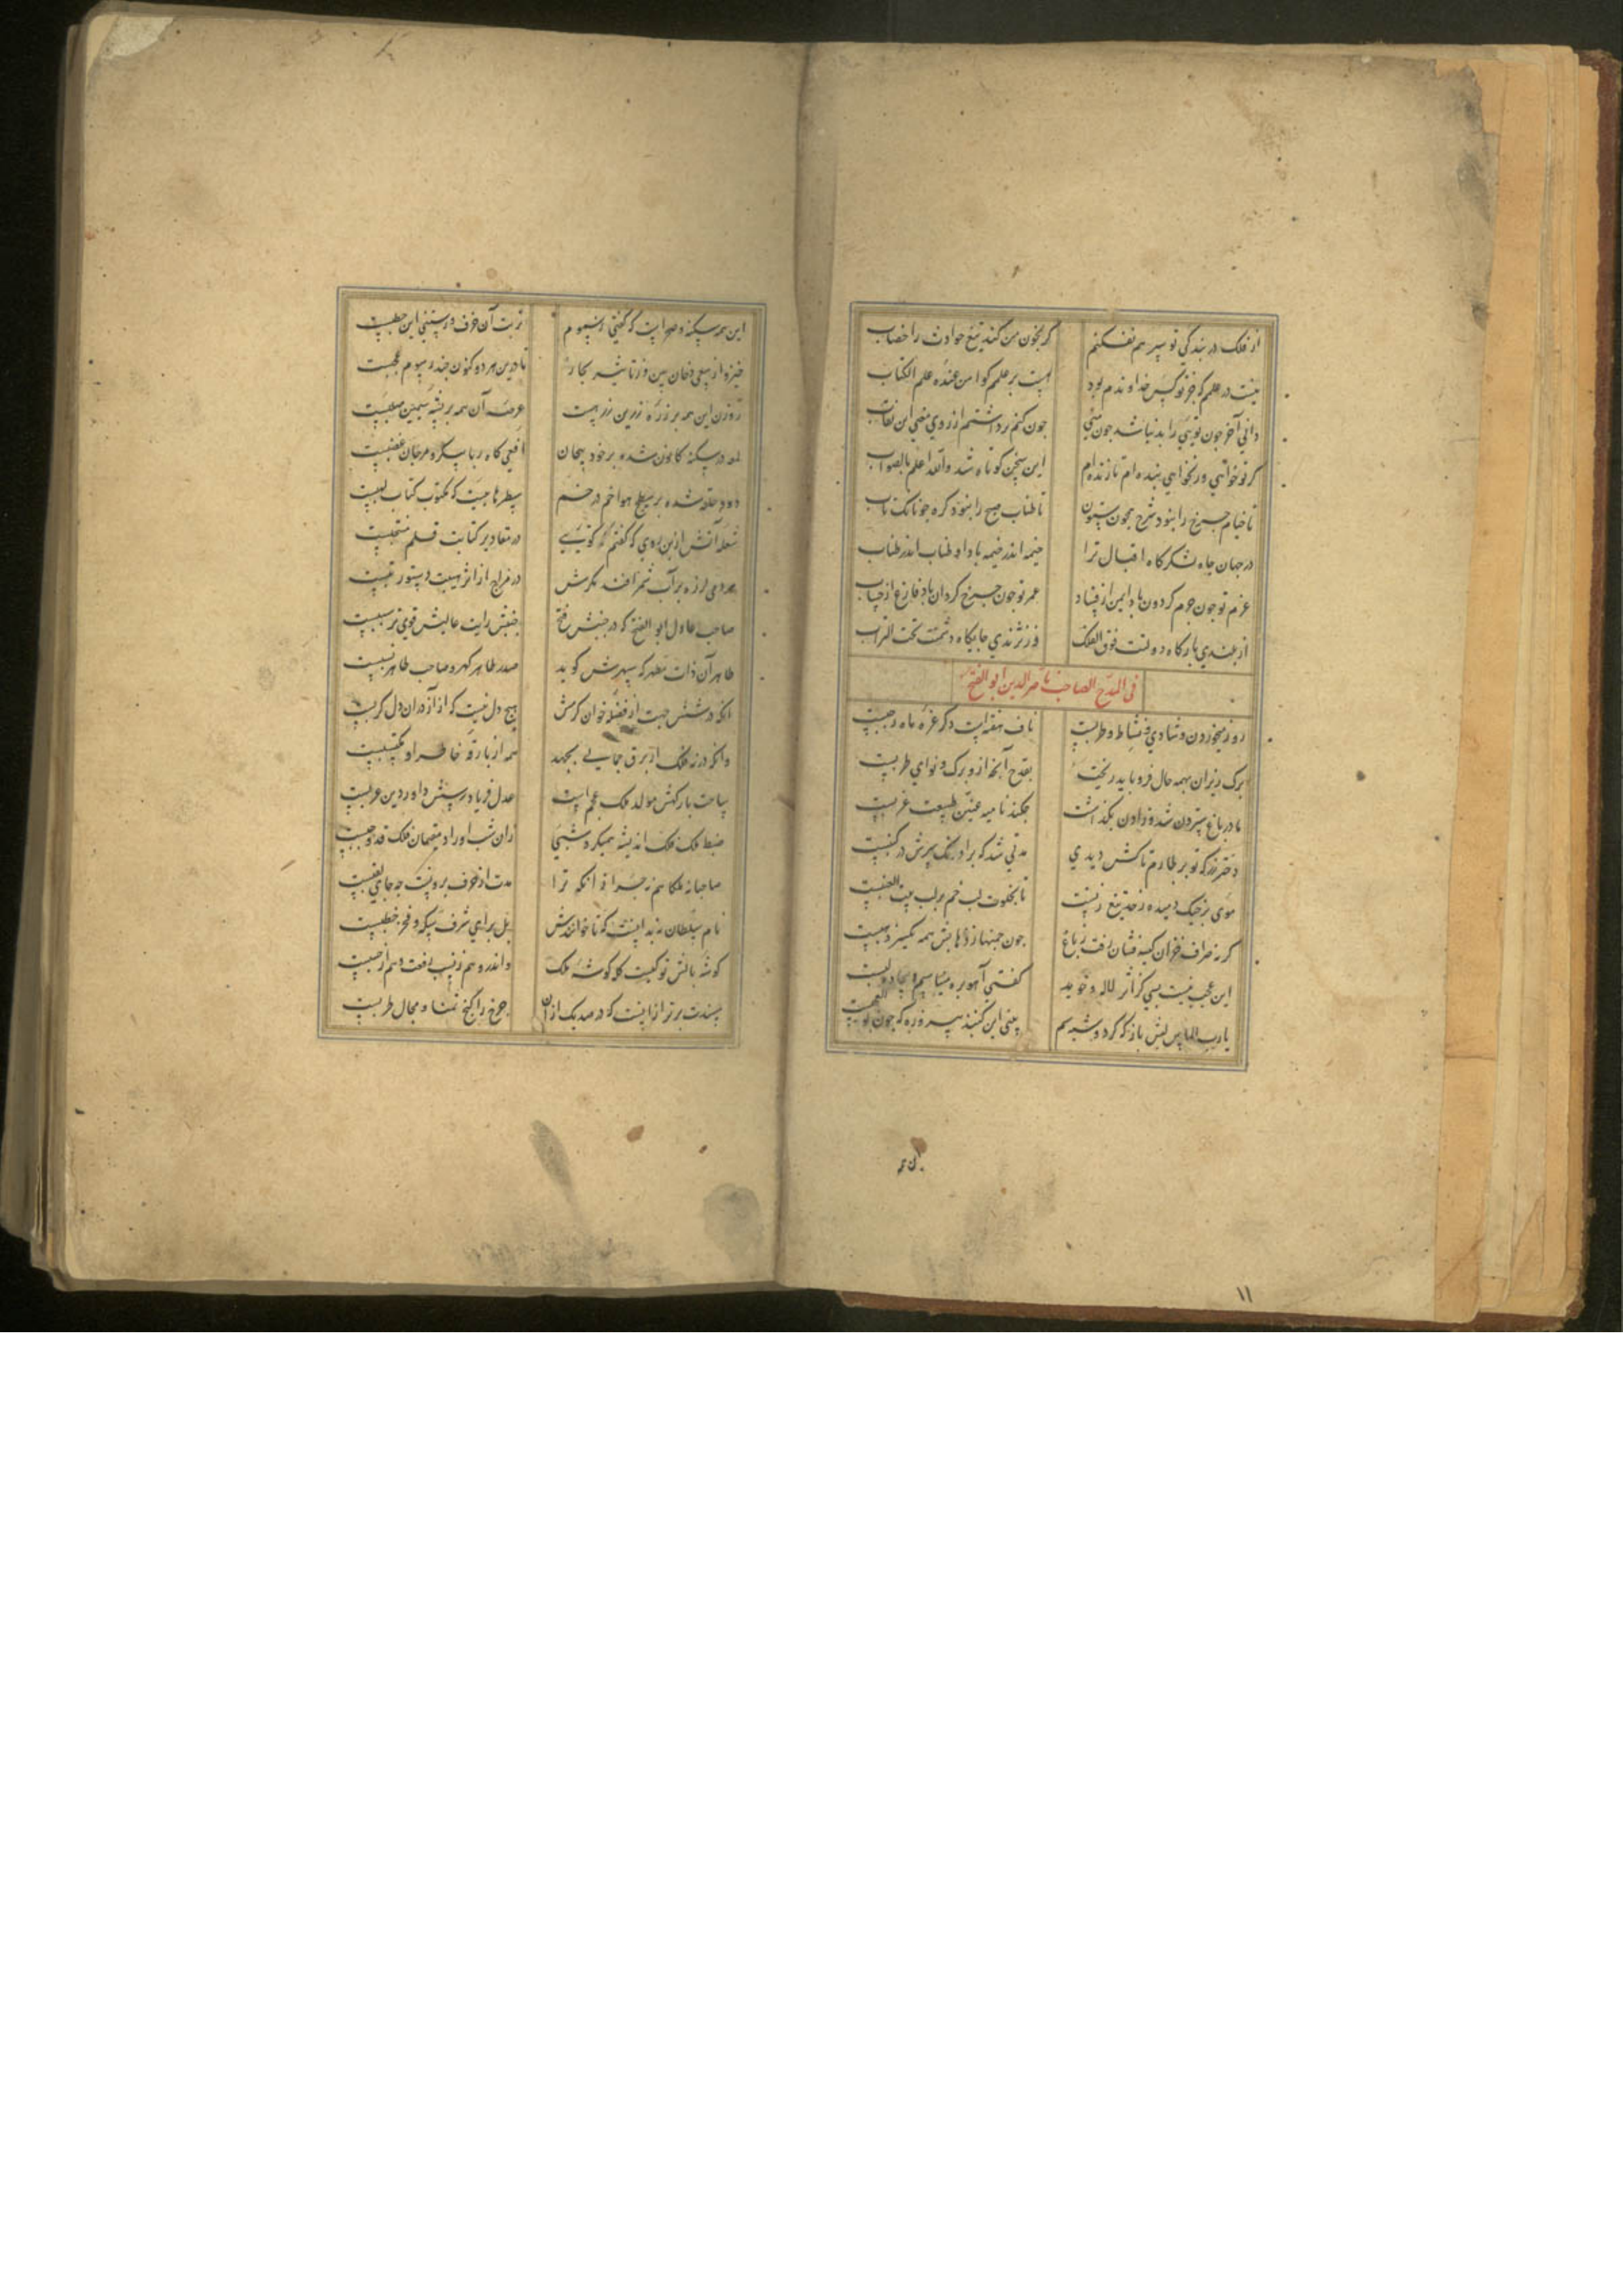 از فلک در بندگی تو سپر هم نفکنم گر بخون من کند تیغ حوادث را خضاب
نیست در علمم که جز تو کس خداوندم بود هست بر علمم گوا من عنده علم الکتاب
دانی آخر چون تویی را بد نباشد چون منی چون کنم برداشتم از روی معنی این نقاب
گر تو خواهی ور نخواهی بنده‌ام تا زنده‌ام این سخن کوتاه شد والله اعلم بالصواب
تا خیام چرخ را نبود شرج همچون ستون تا طناب صبح را نبود گره جونانک تاب
در جهان جاه لشکرگاه اقبال ترا خیمه اندر خیمه باد او طناب اندر طناب
عزم تو جون جرم گردون باد ایمن از فساد عمر تو جون چرخ گردان باد فارغ از حساب
از بلندی بارگاه دولتت فوق الفلک وز نژندی جایگاه دشمنت تحت التراب
فی المدح الصاحب ناصر الدین ابو الفتح
روز میخوردن و شادی و نشاط و طربست ناف هفته است دگر غره ماه رجبست
برگ ریزان بهمه حال فرو باید ریخت بقدح آنچه ازو برگ و نوای طربست
مادر باغ سترون شد و زادن بگذاشت چکند نامیه عنین طبیعت عزبست
دختر رز که تو بر طارم تاکش دیدی مدتی شد که بر آونگ سرش در کنبست
موی بر خیک دمیده ز حد تیغ زنیست تا بخلوت لب خم بر لب بنت العنبست
گرنه صراف خزان کیسه فشان رفت ز باغ چون چمنها ز ذهابش همه یکسر ذهبست
این عجب نیست بسی کز اثر لاله و خوید گفتی آهو بره میناسم و بیجاده لبست
یارب الماس لبش باز که کرد و شبه سم یعنی این گنبد پیروزه که جون بوالعجبست
این همه سکنه و صحراست که گفتی ز سموم تربت آن خزف و رستنی این حطبست
خیز و از سعی دخان بین و ز تاثیر بخار تا درین هر دو کنون چند رسوم عجبست
روزن این همه پر ذره زرین زرهست عرصه آن همه پر پشه سیمین سلبست
لمعه در سکنه کانون شده بر خود پیچان افعی کاه ربا پیکر و مرجان عصبست
دود حلقه شده بر سطح هوا خم در خم سطرهاییست که مکتوب کتاب لهبست
شعله آتش ازین روی که گفتم گویی در مقادیر کتابت قلم منتجبست
بهر دی لرزه بر آب شمر افتد مگرش در مزاج از اثر هیبت دستور تبست
صاحب عادل ابو الفتح که در جنبش فتح جنبش رایت عالیش قوی‌تر سببست
طاهر آن ذات مطهر که سپهرش گوید صدر طاهر گهر و صاحب طاهر نسبست
آنکه در شش جهت از فضله خوان کرمش هیچ دل نیست که از آز در آن دل کربست
وانکه در نه فلک از برق حمایی بجهد همه از بارقه خاطر او مکتسبست
ساحت بارگهش مولد ملک عجم است عدل فریاد رسش داور دین عربست
ضبط ملک فلک اندیشه همیکرد شبی زان شب او را دم مقصان ملک قد وجبست
صاحبا ملکا هم نه جزا آنکه ترا مدت از حرف برونست چه جای لقبست
نام سلطان نه بدانست که تا خوانندش بل برای شرف سکه و فخر خطبست
گوشه بالش تو کیست کله گوشه ملک واندرو هم ز نسب رفعت و هم از حسبست
مسندت برتر از آنست که در صد یک از آن چرخ را گنج تمنا و مجال طربست
۱۱